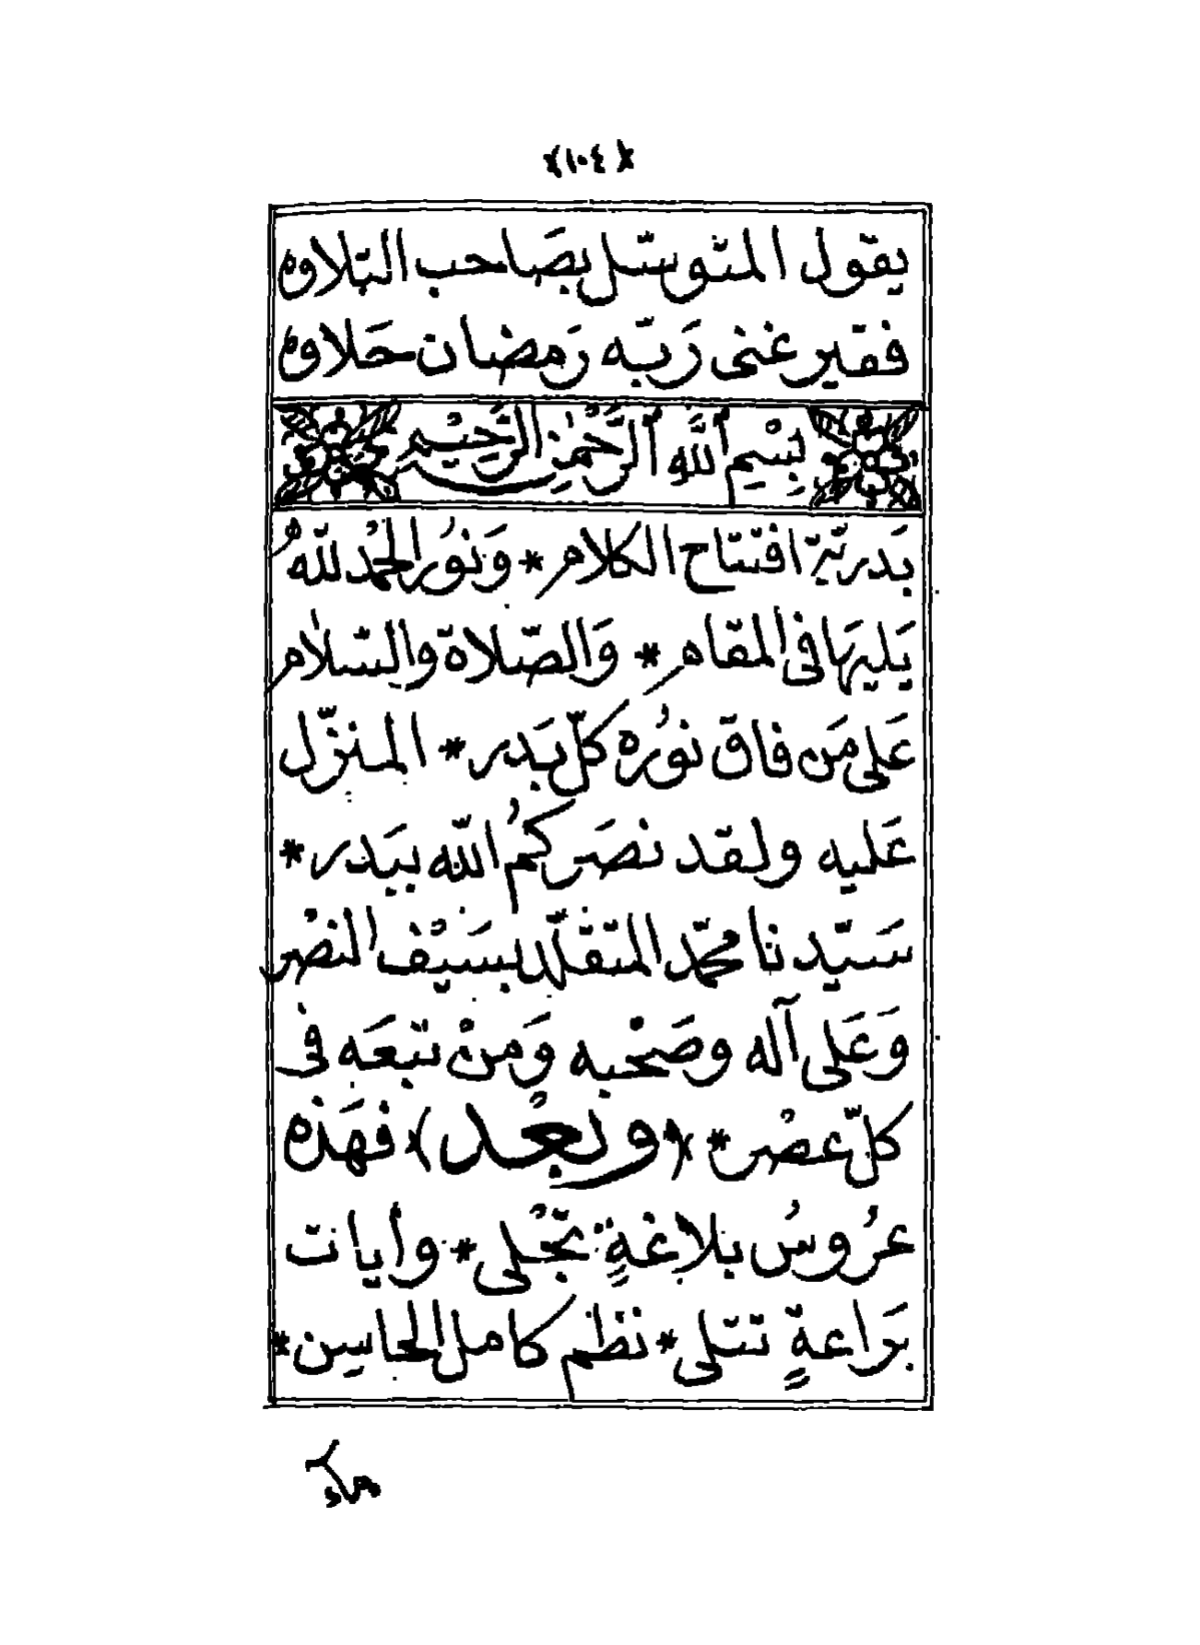 (١٠٤)
يقول المتوسّل بصَاحب التلاوه
فقير غنى رَبّه رَمضان حَلاوه
بِسْمِ اللَّهِ الرَّحْمٰنِ الرَّحِيْمِ
بَدريّة افتتاح الكلام * وَنوُر الحمْد للّهُ
يَليهَا فى المقام * وَالصّلاة والسّلام
عَلى مَن فاق نوُره كلّ بَدر * المنزّل
عَليه ولقد نصَركمُ اللّه ببَدر *
سَيّدنا محمّد المتقلّد بسَيْف النصْر
وَعَلى آله وصَحْبه وَمنْ تبعَه فى
كلّ عصْر * (وبعْد) فهَذه
عرُوسُ بلاغةٍ تجْلى * وأيات
بَراعةٍ تتلى * نظم كامل المحاسن *